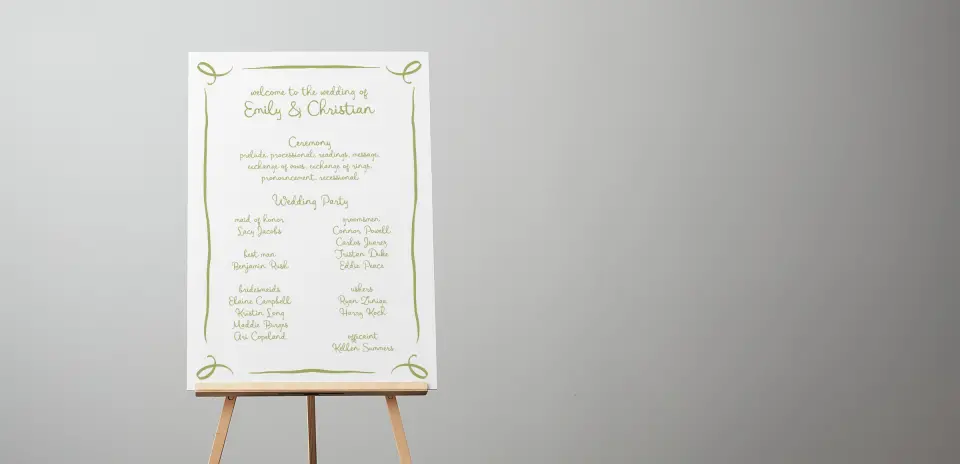 welcome to the wedding of
Emily & Christian
Ceremony
prelude, processional, readings, message,
exchange of vows, exchange of rings,
pronouncement, recessional
Wedding Party
maid of honor
Lacy Jacobs
best man
Benjamin Rush
bridesmaids
Elaine Campbell
Kristin Long
Maddie Burgos
Ari Copeland
groomsmen
Connor Powell
Carlos Juarez
Tristan Duke
Eddie Peace
ushers
Ryan Zuniga
Harry Koch
Summers